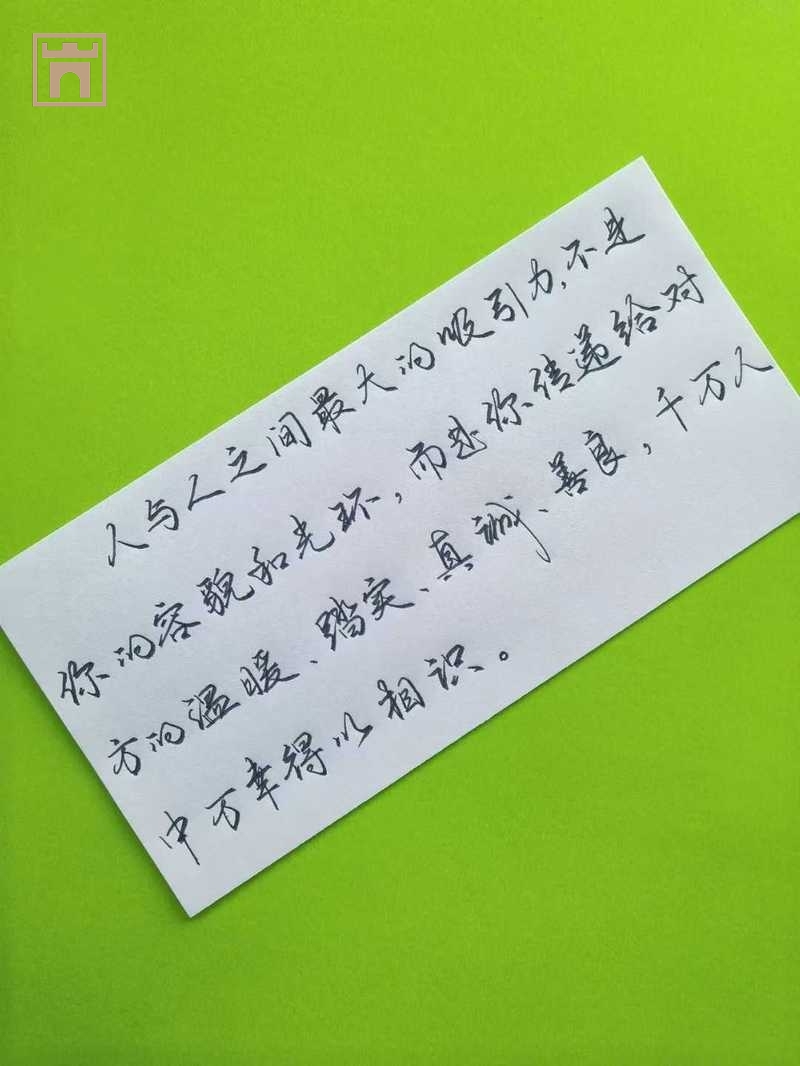 人与人之间最大的吸引力,不是
你的容貌和光环,而是你传递给对
方的温暖、踏实、真诚、善良,千万人
中万幸得以相识。